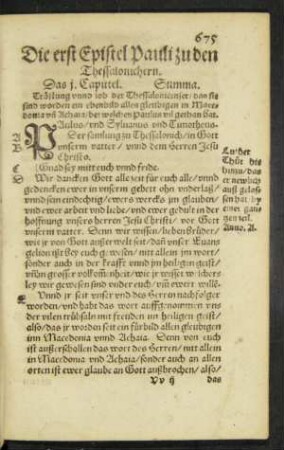 675
Die erst Epistel Pauli zu den
Thessalonichern.
Das j. Capitel. Summa.
Tröstung vnnd lob der Thessalonicenser: das sie
sind worden ein ebenbild allen gleubigen in Mace-
donia vñ Achaia / bey welchen Paulus vil gethan hat.
Paulus / vnd Syluanus vnd Timotheus.
Der samlung zu Thessalonich / in Gott
vnserm vatter / vnnd dem Herren Jesu
Christo.
Gnad sey mit euch vnnd fride.
Wir dancken Gott alle zeit für euch alle / vnnd
gedencken ewer in vnserm gebett ohn vnderlaß /
vnd sein eindechtig / ewers wercks im glauben /
vnd ewer arbeit vnd liebe / vnd ewer gedult in der
hoffnung vnsers herren Jesu Christi / vor Gott
vnserm vatter. Denn wir wissen / lieben Brüder /
wie jr von Gott außerwelt seit / dañ vnser Euan-
gelion ist bey euch gewesen / nit allein im wort /
sonder auch in der krafft vnnd im heiligen geist /
vñ in grosser volkomenheit / wie jr wisset welcher-
ley wir gewesen sind vnder euch / vm ewert willen.
Vnnd jr seit vnser vnd des Herren nachfolger
worden / vnd habt das wort auffgenommen vn-
der vilen trübsaln mit freuden im heiligen geist /
also / das jr worden seit ein fürbild allen gleubigen
inn Macedonia vnnd Achaia. Denn von euch
ist außerschollen das wort des Herren / nit allein
in Macedonia vnd Achaia / sonder auch an allen
orten ist ewer glaube an Gott außbrochen / also /
das